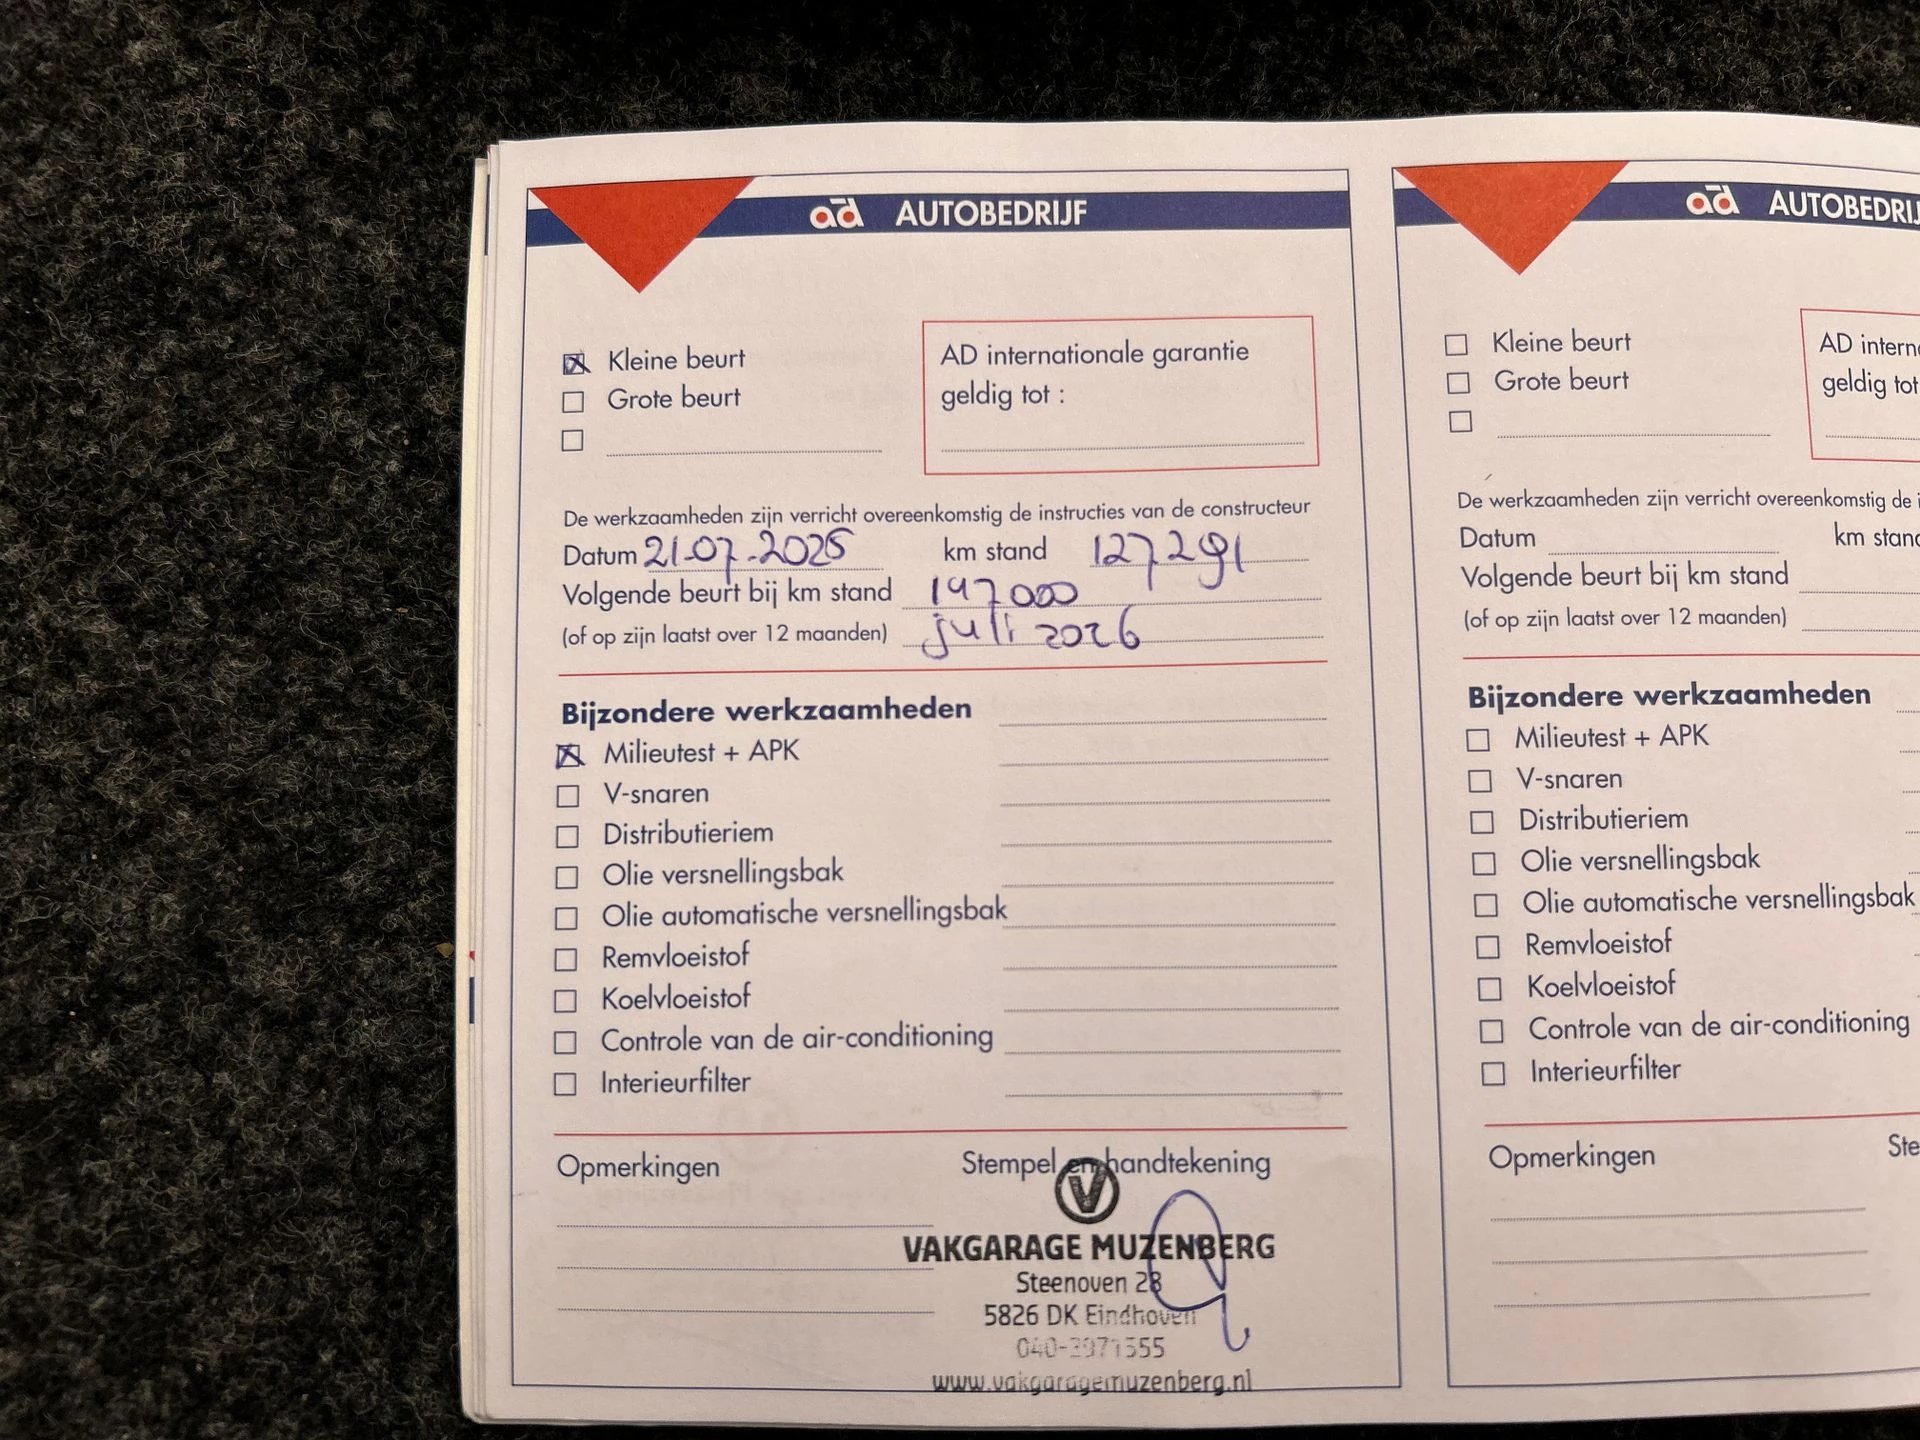 ad AUTOBEDRIJF
Kleine beurt
Grote beurt
AD internationale garantie
geldig tot :
De werkzaamheden zijn verricht overeenkomstig de instructies van de constructeur
Datum 21-07-2025 km stand 127291
Volgende beurt bij km stand 147000
(of op zijn laatst over 12 maanden) juli 2026
Bijzondere werkzaamheden
Milieutest + APK
V-snaren
Distributieriem
Olie versnellingsbak
Olie automatische versnellingsbak
Remvloeistof
Koelvloeistof
Controle van de air-conditioning
Interieurfilter
Opmerkingen
Stempel en handtekening
V
VAKGARAGE MUZENBERG
Steenoven 28
5826 DK Eindhoven
www.vakgaragemuzenberg.nl
ad AUTOBEDRIJ
Kleine beurt
Grote beurt
AD intern
geldig tot
De werkzaamheden zijn verricht overeenkomstig de i
Datum km stand
Volgende beurt bij km stand
(of op zijn laatst over 12 maanden)
Bijzondere werkzaamheden
Milieutest + APK
V-snaren
Distributieriem
Olie versnellingsbak
Olie automatische versnellingsbak
Remvloeistof
Koelvloeistof
Controle van de air-conditioning
Interieurfilter
Opmerkingen
Ste